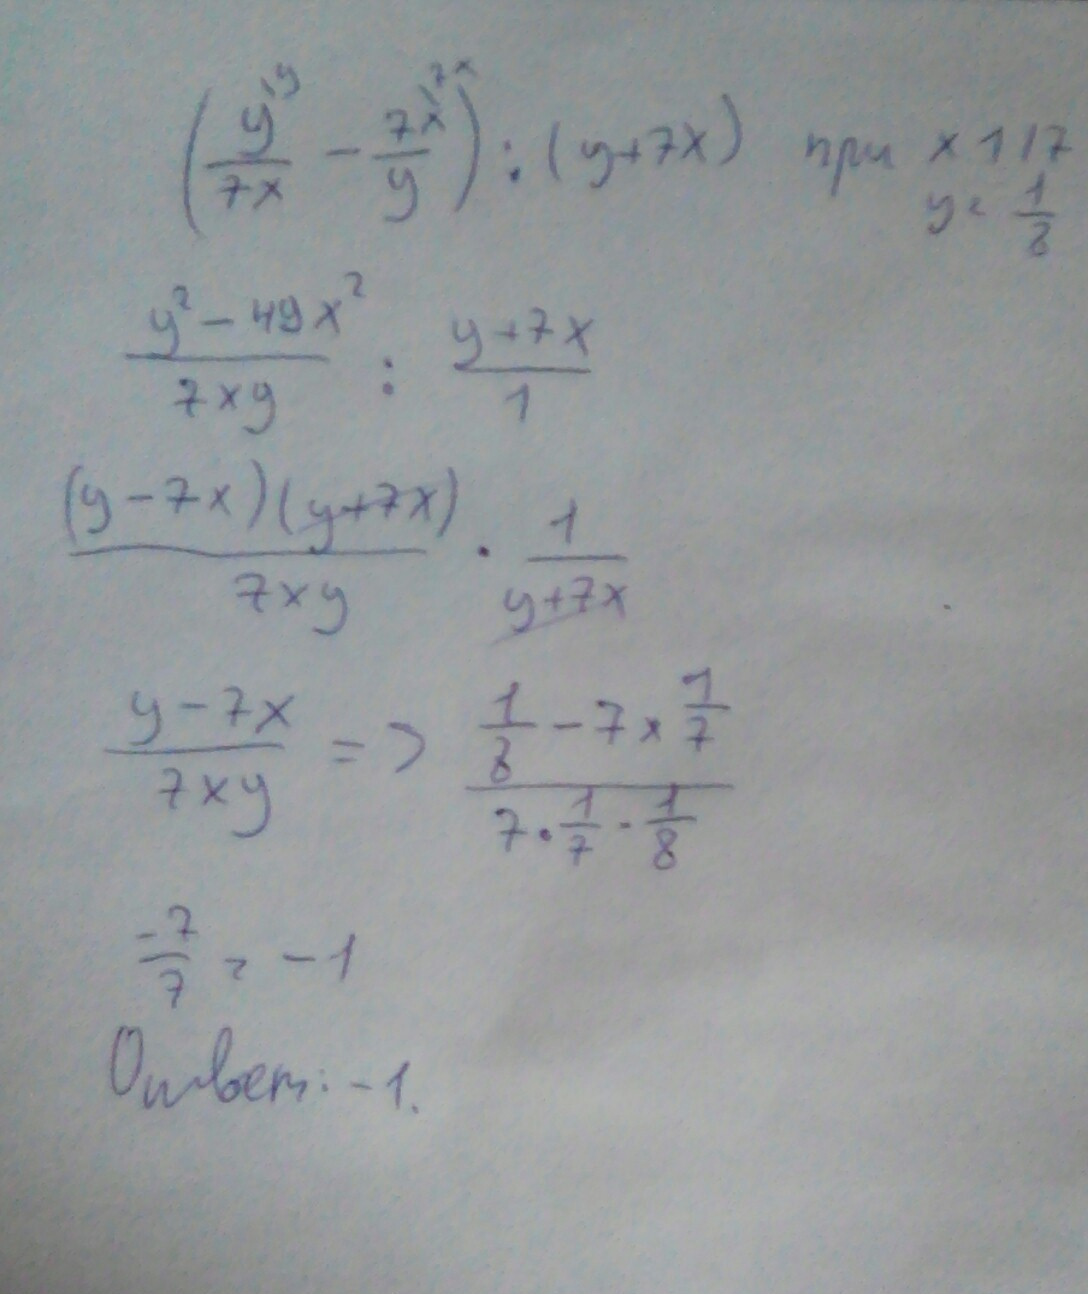 (y^{\y}/7x − 7x^{\7x}/y) : (y+7x) при x 1/7
y = 1/8
(y² − 49x²)/(7xy) : (y+7x)/1
(y − 7x)(y+7x)/(7xy) · 1/(y+7x)
(y − 7x)/(7xy) => (1/8 − 7 × 1/7)/(7 · 1/7 · 1/8)
−7/7 = −1
Ответ: −1.